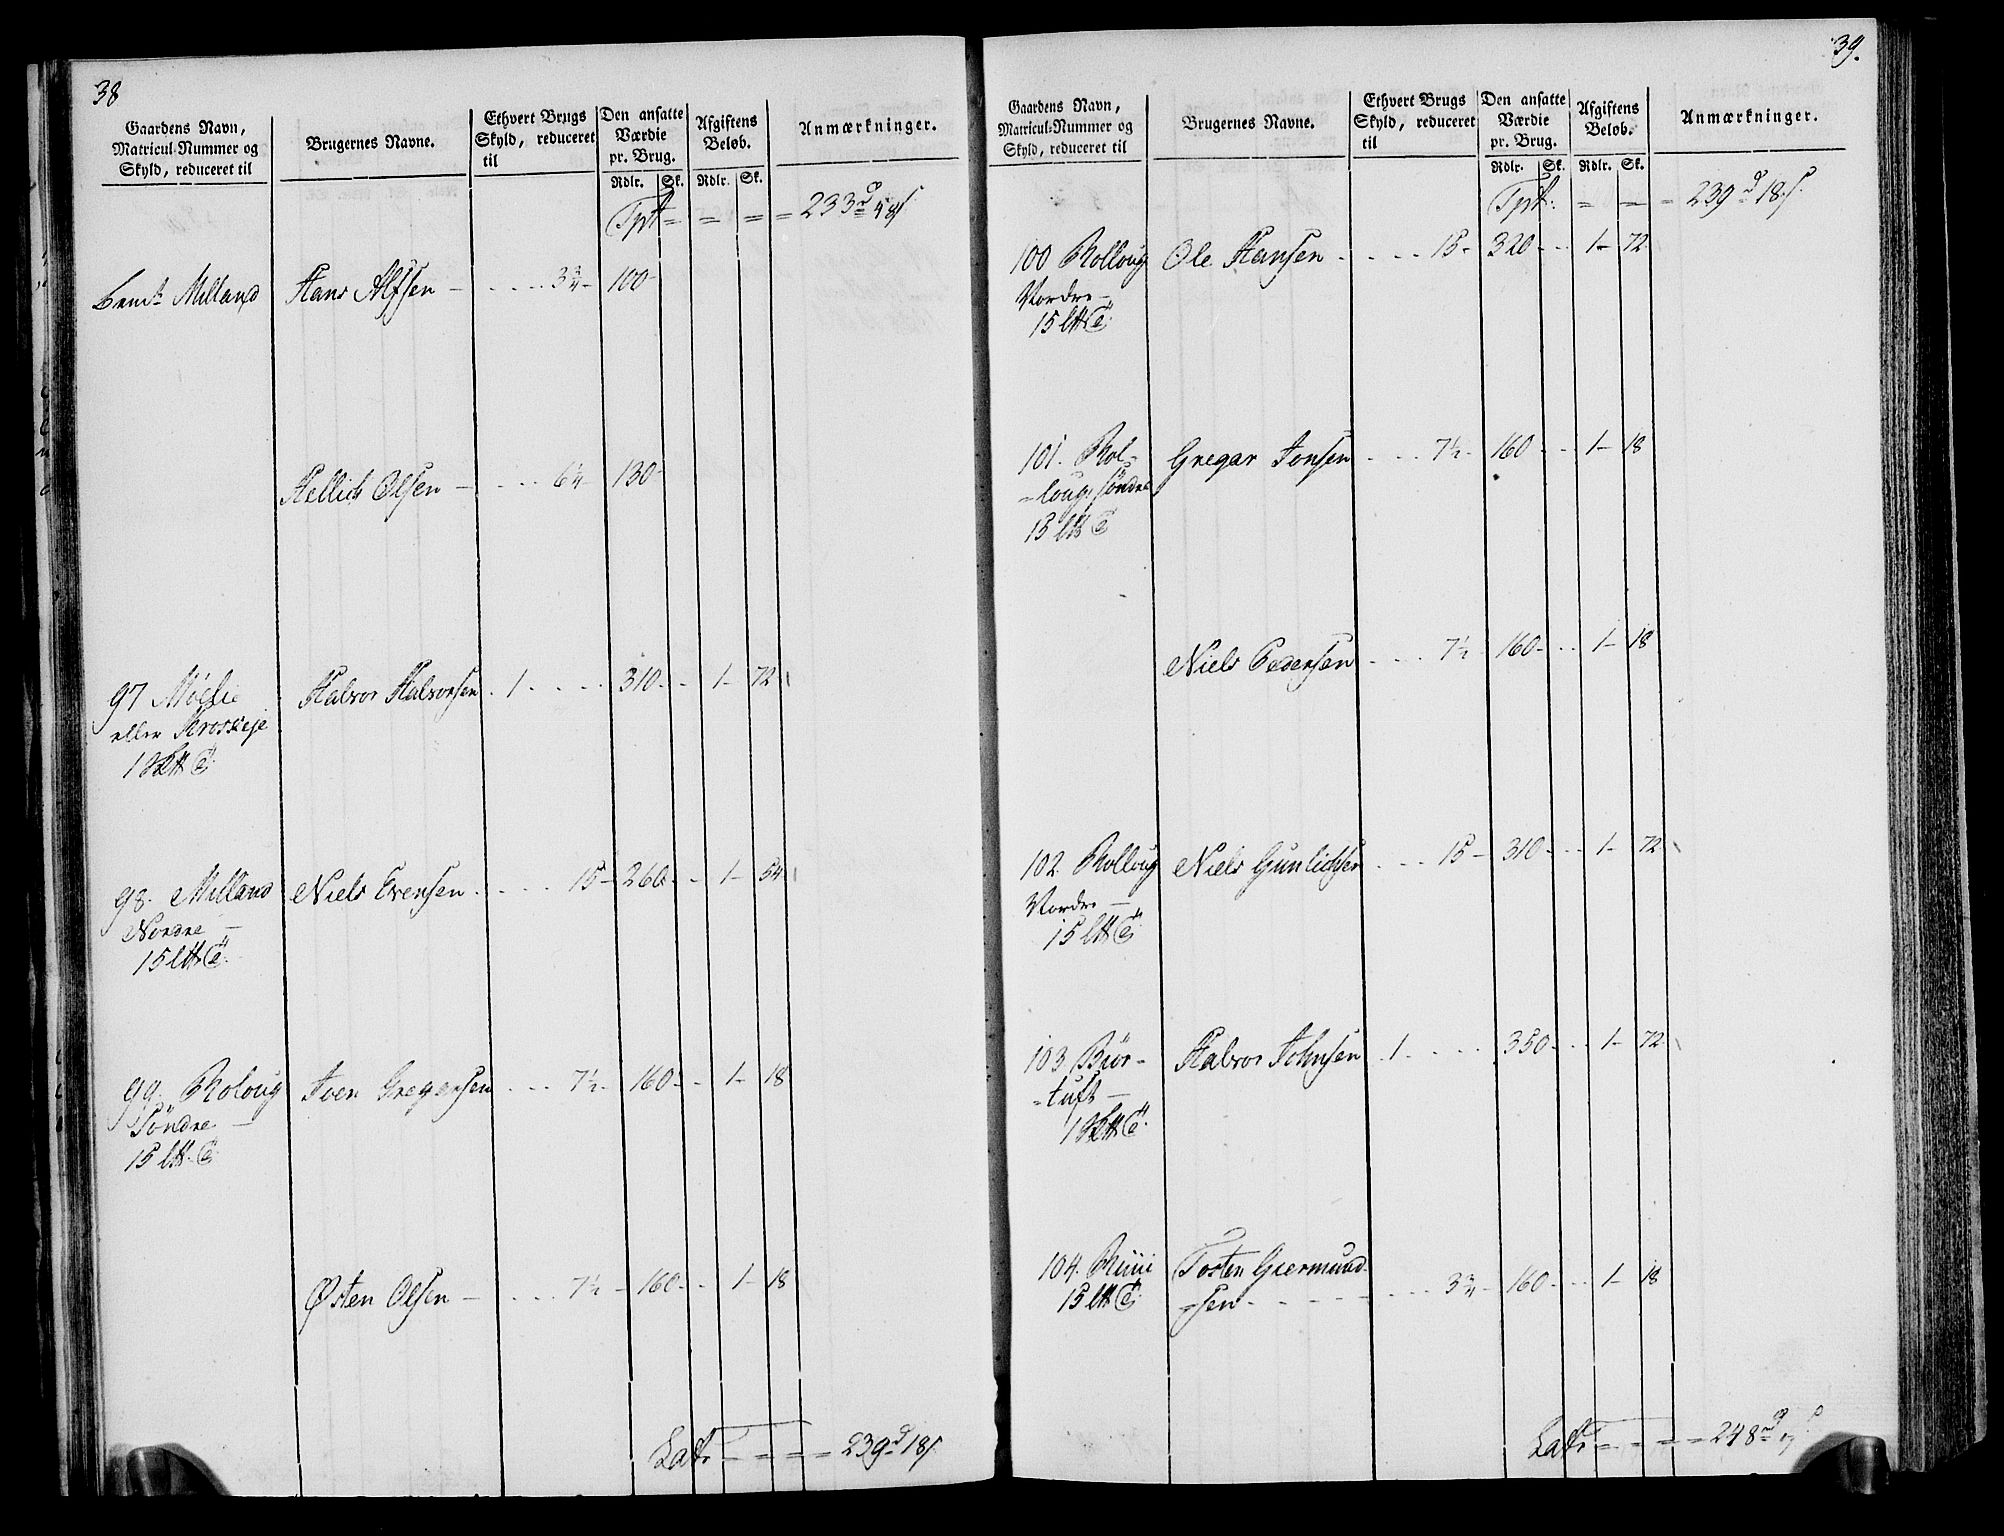 38
Gaardens Navn, Matricul-Nummer og Skyld, reduceret til
Brugernes Navne.
Ethvert Brugs Skyld, reduceret til
Den ansatte Værdie pr. Brug.
Afgiftens Beløb.
Anmærkninger.
Rdlr. Sk. Rdlr. Sk.
Tpt = = = = 233
Milland Hans Alfsen - .... 3¾ - 100 -
Hellick Olsen - .... 6¼ - 130 -
97 Møelie Halvor Halvorsen . 1 .... 310 - - 1 - 72
eller
1
98. Milland Niels Evensen .... 15 - 260 - - 1 - 54
Nordre -
15
99. Roloug Iver Gregersen ... 7½ - 160 - - 1 - 18
Söndre -
15
Østen Olsen - .... 7½ - 160 - - 1 - 18
Latr = = = = 239 18
39.
Gaardens Navn, Matricul-Nummer og Skyld, reduceret til
Brugernes Navne.
Ethvert Brugs Skyld, reduceret til
Den ansatte Værdie pr. Brug.
Afgiftens Beløb.
Anmærkninger.
Rdlr. Sk. Rdlr. Sk.
Tpt. = = = 239 18
100 Rolloug Ole Hansen .... 15 - 320 - - 1 - 72
15
101. Rol- Gregar Jonsen ... 7½ - 160 - - 1 - 18
=loug söndre
15
Niels Pedersen ... 7½ - 160 - - 1 - 18
102. Rolloug Niels Gunlichsen ... 15 - 310 - - 1 - 72
15
103 Biör- Halvor Johnsen . 1 .... 350 - - 1 - 72
=tuft -
1
104. Tosten Giermund-
15 =sen .... 3¾ - 160 - - 1 - 18
Latr = = = = 248